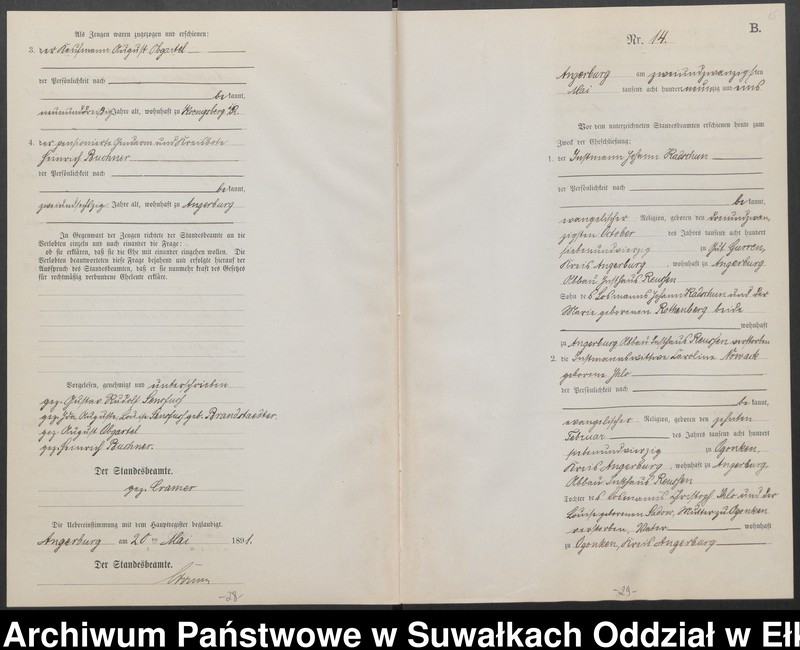 Als Zeugen waren zugezogen und erschienen:
3. der Kaufmann August Obgartel
der Persönlichkeit nach
be kannt,
neununddreißig Jahre alt, wohnhaft zu Koenigsberg i/P.
4. der pensionierte Gendarm und Kreisbote
Heinrich Buchner
der Persönlichkeit nach
be kannt,
zweiundsechszig Jahre alt, wohnhaft zu Angerburg
In Gegenwart der Zeugen richtete der Standesbeamte an die
Verlobten einzeln und nach einander die Frage:
ob sie erklären, daß sie die Ehe mit einander eingehen wollen. Die
Verlobten beantworteten diese Frage bejahend und erfolgte hierauf der
Ausspruch des Standesbeamten, daß er sie nunmehr kraft des Gesetzes
für rechtmäßig verbundene Eheleute erkläre.
Vorgelesen, genehmigt und unterschrieben
gez. Gustav Rudolf
gez. Ida Auguste Louise geb. Brandstaedter.
gez. August Obgartel
gez. Heinrich Buchner.
Der Standesbeamte.
gez. Cramer
Die Uebereinstimmung mit dem Hauptregister beglaubigt.
Angerburg am 20 ten Mai 1891.
Der Standesbeamte.
-28-
B.
Nr. 14.
Angerburg am zweiundzwanzigsten
Mai tausend acht hundert neunzig und eins
Vor dem unterzeichneten Standesbeamten erschienen heute zum
Zweck der Eheschließung:
1. der Instmann Johann Radschun
der Persönlichkeit nach
be kannt,
evangelischer Religion, geboren den dreiundzwan-
zigsten October des Jahres tausend acht hundert
siebenundvierzig zu Gut Gurren,
Kreis Angerburg, wohnhaft zu Angerburg
Abbau Insthaus Reussen
Sohn des Losmanns Johann Radschun und der
Marie geborenen Rothenberg beide
wohnhaft
zu Angerburg Abbau Insthaus Reussen verstorben
2. die Instmannswittwe Caroline Nowack
geborene Ihlo
der Persönlichkeit nach
be kannt,
evangelischer Religion, geboren den zehnten
Februar des Jahres tausend acht hundert
siebenundvierzig zu Ogonken,
Kreis Angerburg, wohnhaft zu Angerburg,
Abbau Insthaus Reussen
Tochter des Losmanns Christoph Ihlo und der
Louise geborenen Sadow, Mutter zu Ogonken
verstorben, Vater wohnhaft
zu Ogonken, Kreis Angerburg
-29-
Archiwum Państwowe w Suwałkach Oddział w Ełk